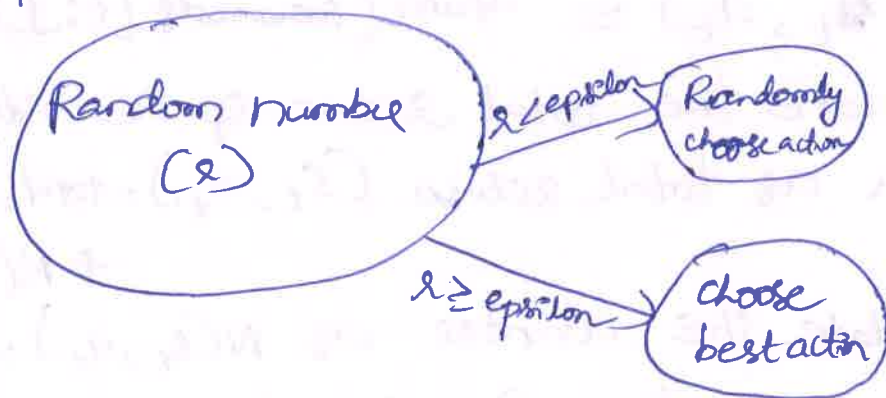 Random number
(r)
r < epsilon
Randomly
choose action
r ≥ epsilon
choose
best action